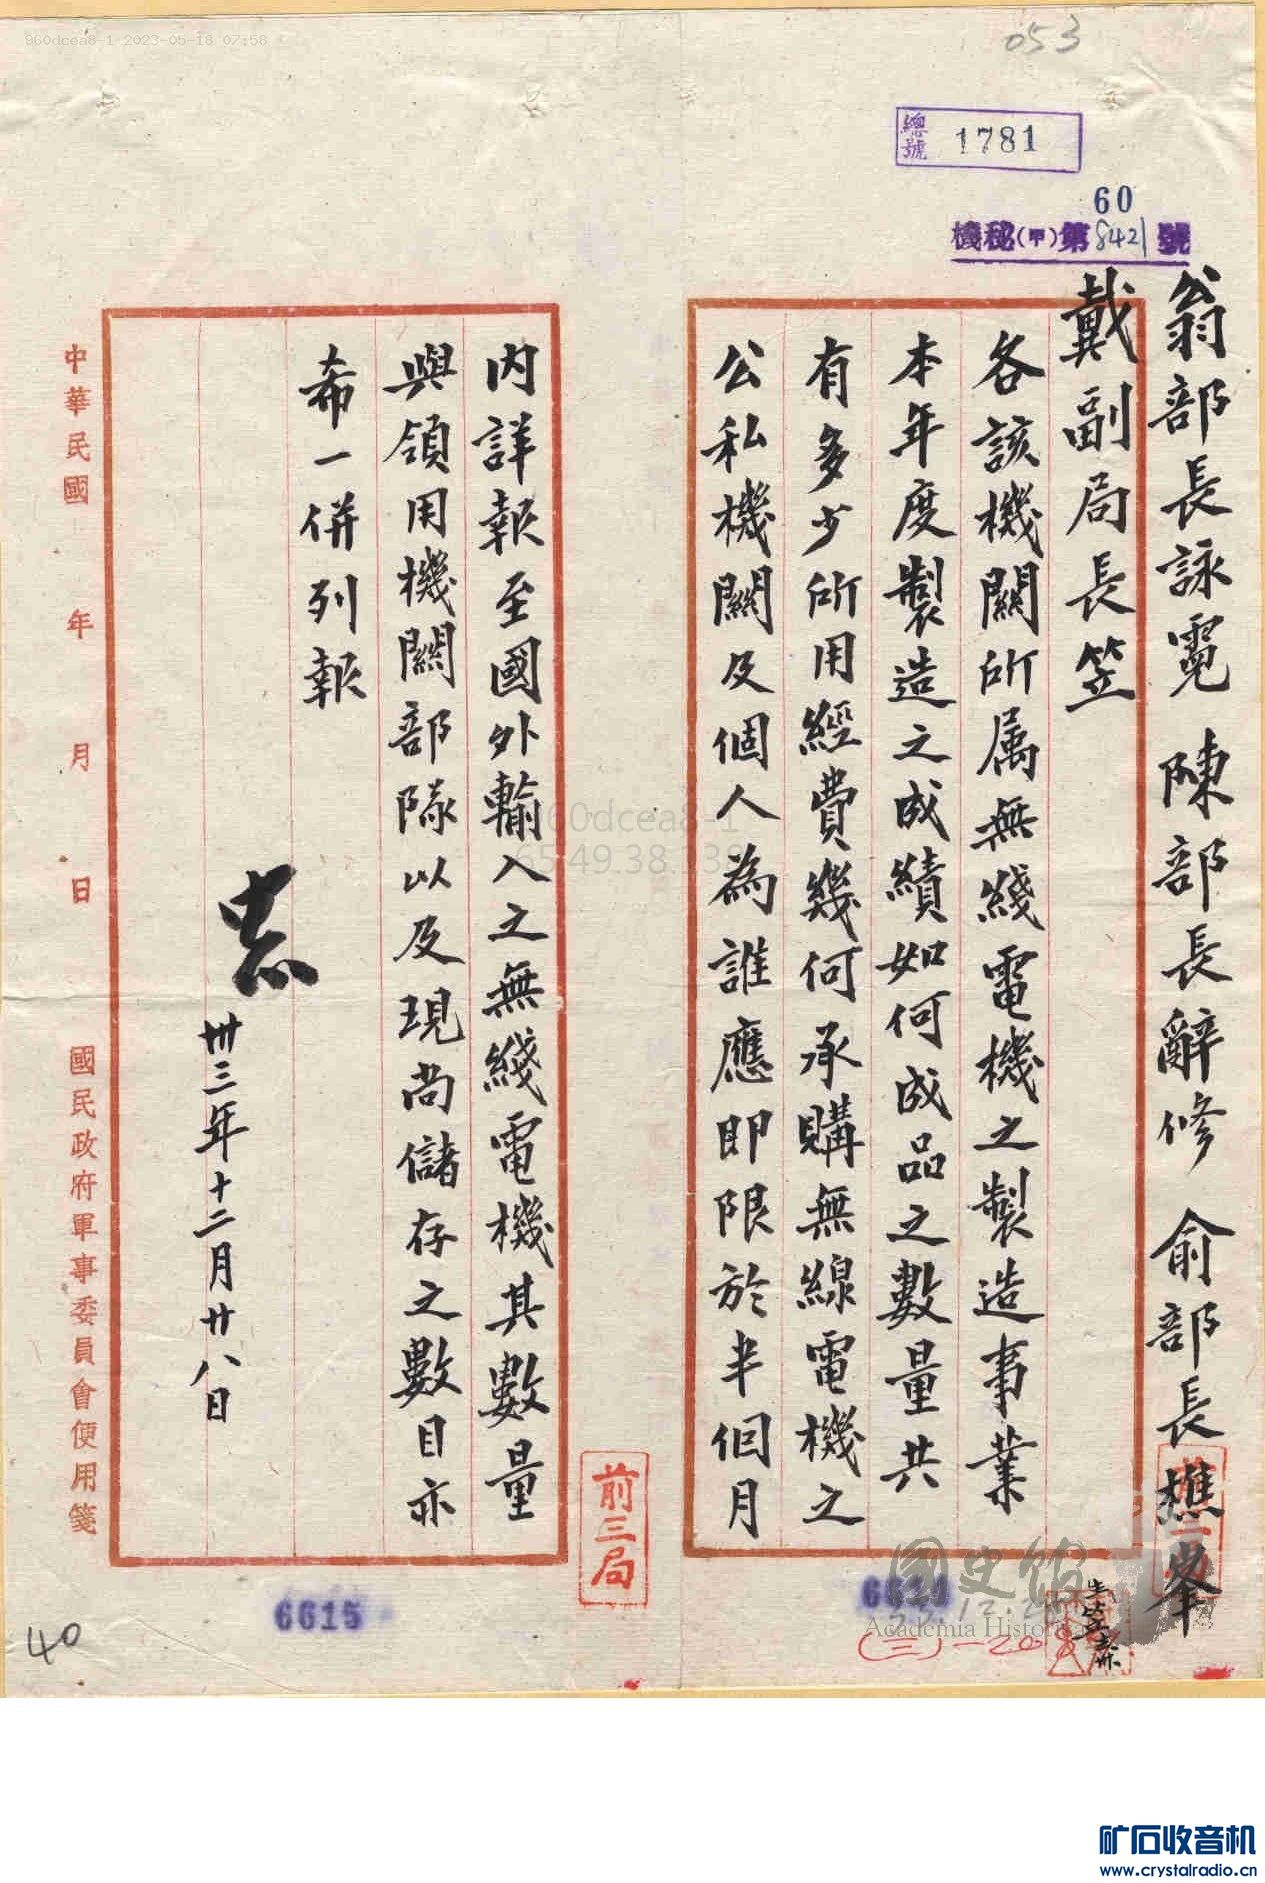 960dcea8-1 2023-05-18 07:58
053
總號 1781
60
機秘(甲)第8421號
翁部長詠霓 陳部長辭修 俞部長樵峯
戴副局長笠
各該機關所属無綫電機之製造事業
本年度製造之成績如何成品之數量共
有多少所用經費幾何承購無線電機之
公私機關及個人為誰應即限於半個月
內詳報至國外輸入之無綫電機其數量
與領用機關部隊以及現尚儲存之數目亦
希一併列報
卅三年十二月廿八日
中華民國 年 月 日 國民政府軍事委員會使用箋
前三局
6615
40
(三)-20
國史館
Academia Historica
960dcea8-1
65.49.38.138
矿石收音机
www.crystalradio.cn